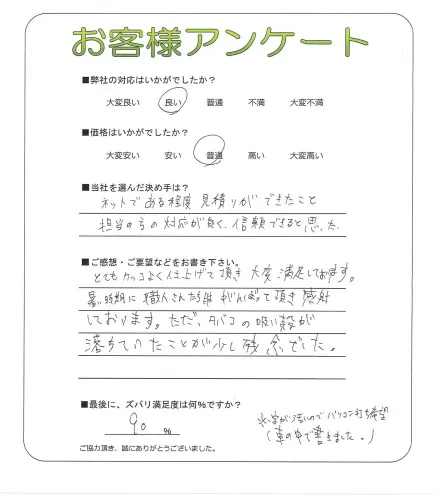 お客様アンケート
■弊社の対応はいかがでしたか?
大変良い 良い 普通 不満 大変不満
■価格はいかがでしたか?
大変安い 安い 普通 高い 大変高い
■当社を選んだ決め手は?
ネットである程度見積りができたこと
担当の方の対応が良く、信頼できると思った
■ご感想・ご要望などをお書き下さい。
とてもカッコよく仕上げて頂き大変満足しております。
暑い時期に職人さんたちは がんばって頂き感謝
しております。ただ、タバコの吸い殻が
落ちていたことが少し残念でした。
■最後に、ズバリ満足度は何%ですか?
90 %
※字が汚いのでパソコン打ち希望
(車の中で書きました。)
ご協力頂き、誠にありがとうございました。